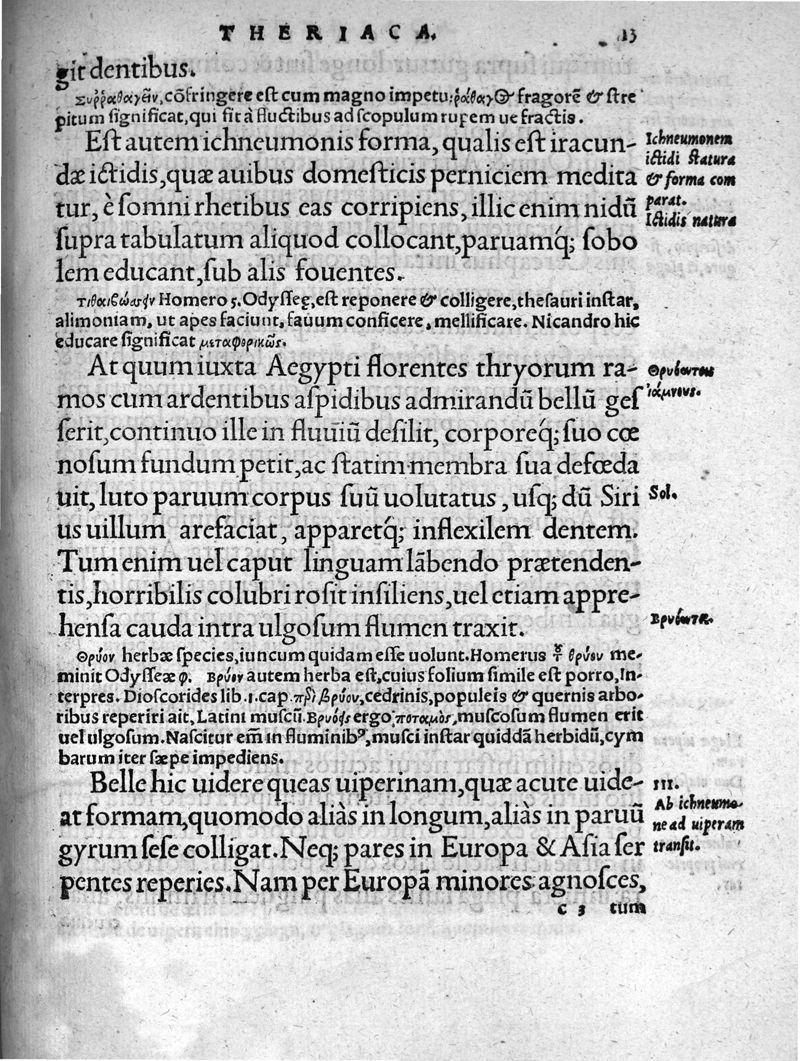 THERIACA. 13
git dentibus.
Συῤῥαθαγεῖν, cõfringere eſt cum magno impetu: ῥάθαγος fragorẽ & ſtre
pitum ſignificat, qui fit à fluctibus ad ſcopulum rupem ue fractis.
Eſt autem ichneumonis forma, qualis eſt iracun-
dæ ictidis, quæ auibus domeſticis perniciem medita
tur, è ſomni rhetibus eas corripiens, illic enim nidũ
ſupra tabulatum aliquod collocant, paruamq́; ſobo
lem educant, ſub alis fouentes.
Ichneumonem
ictidi ſtatura
& forma com
parat.
Ictidis natura
Homero 5. Odyſſeę, eſt reponere & colligere, theſauri inſtar,
alimoniam, ut apes faciunt, fauum conficere, mellificare. Nicandro hic
educare ſignificat μεταφορικῶς.
At quum iuxta Aegypti florentes thryorum ra-
mos cum ardentibus aſpidibus admirandũ bellũ geſ
ſerit, continuo ille in fluuiũ deſilit, corporeq́; ſuo cœ
noſum fundum petit, ac ſtatim membra ſua defœda
uit, luto paruum corpus ſuũ uolutatus, uſq; dũ Siri
us uillum arefaciat, apparetq́; inflexilem dentem.
Tum enim uel caput linguam lãbendo prætenden-
tis, horribilis colubri roſit inſiliens, uel etiam appre-
henſa cauda intra ulgoſum flumen traxit.
ἰάμνους.
Sol.
Θρύον herbæ ſpecies, iuncum quidam eſſe uolunt. Homerus θρύου me-
minit Odyſſeæ φ. Βρύον autem herba eſt, cuius folium ſimile eſt porro, In-
terpres. Dioſcorides lib. 1. cap. περὶ βρύου, cedrinis, populeis & quernis arbo-
ribus reperiri ait, Latini muſcũ. ergo ποταμὸς, muſcoſum flumen erit
uel ulgoſum. Naſcitur em̃ in fluminibꝰ, muſci inſtar quiddã herbidũ, cym
barum iter ſæpe impediens.
Belle hic uidere queas uiperinam, quæ acute uide-
at formam, quomodo aliàs in longum, aliàs in paruũ
gyrum ſeſe colligat. Neq; pares in Europa & Aſia ſer
pentes reperies. Nam per Europã minores agnoſces,
III.
Ab ichneumo-
ne ad uiperam
tranſit.
c 3 tum